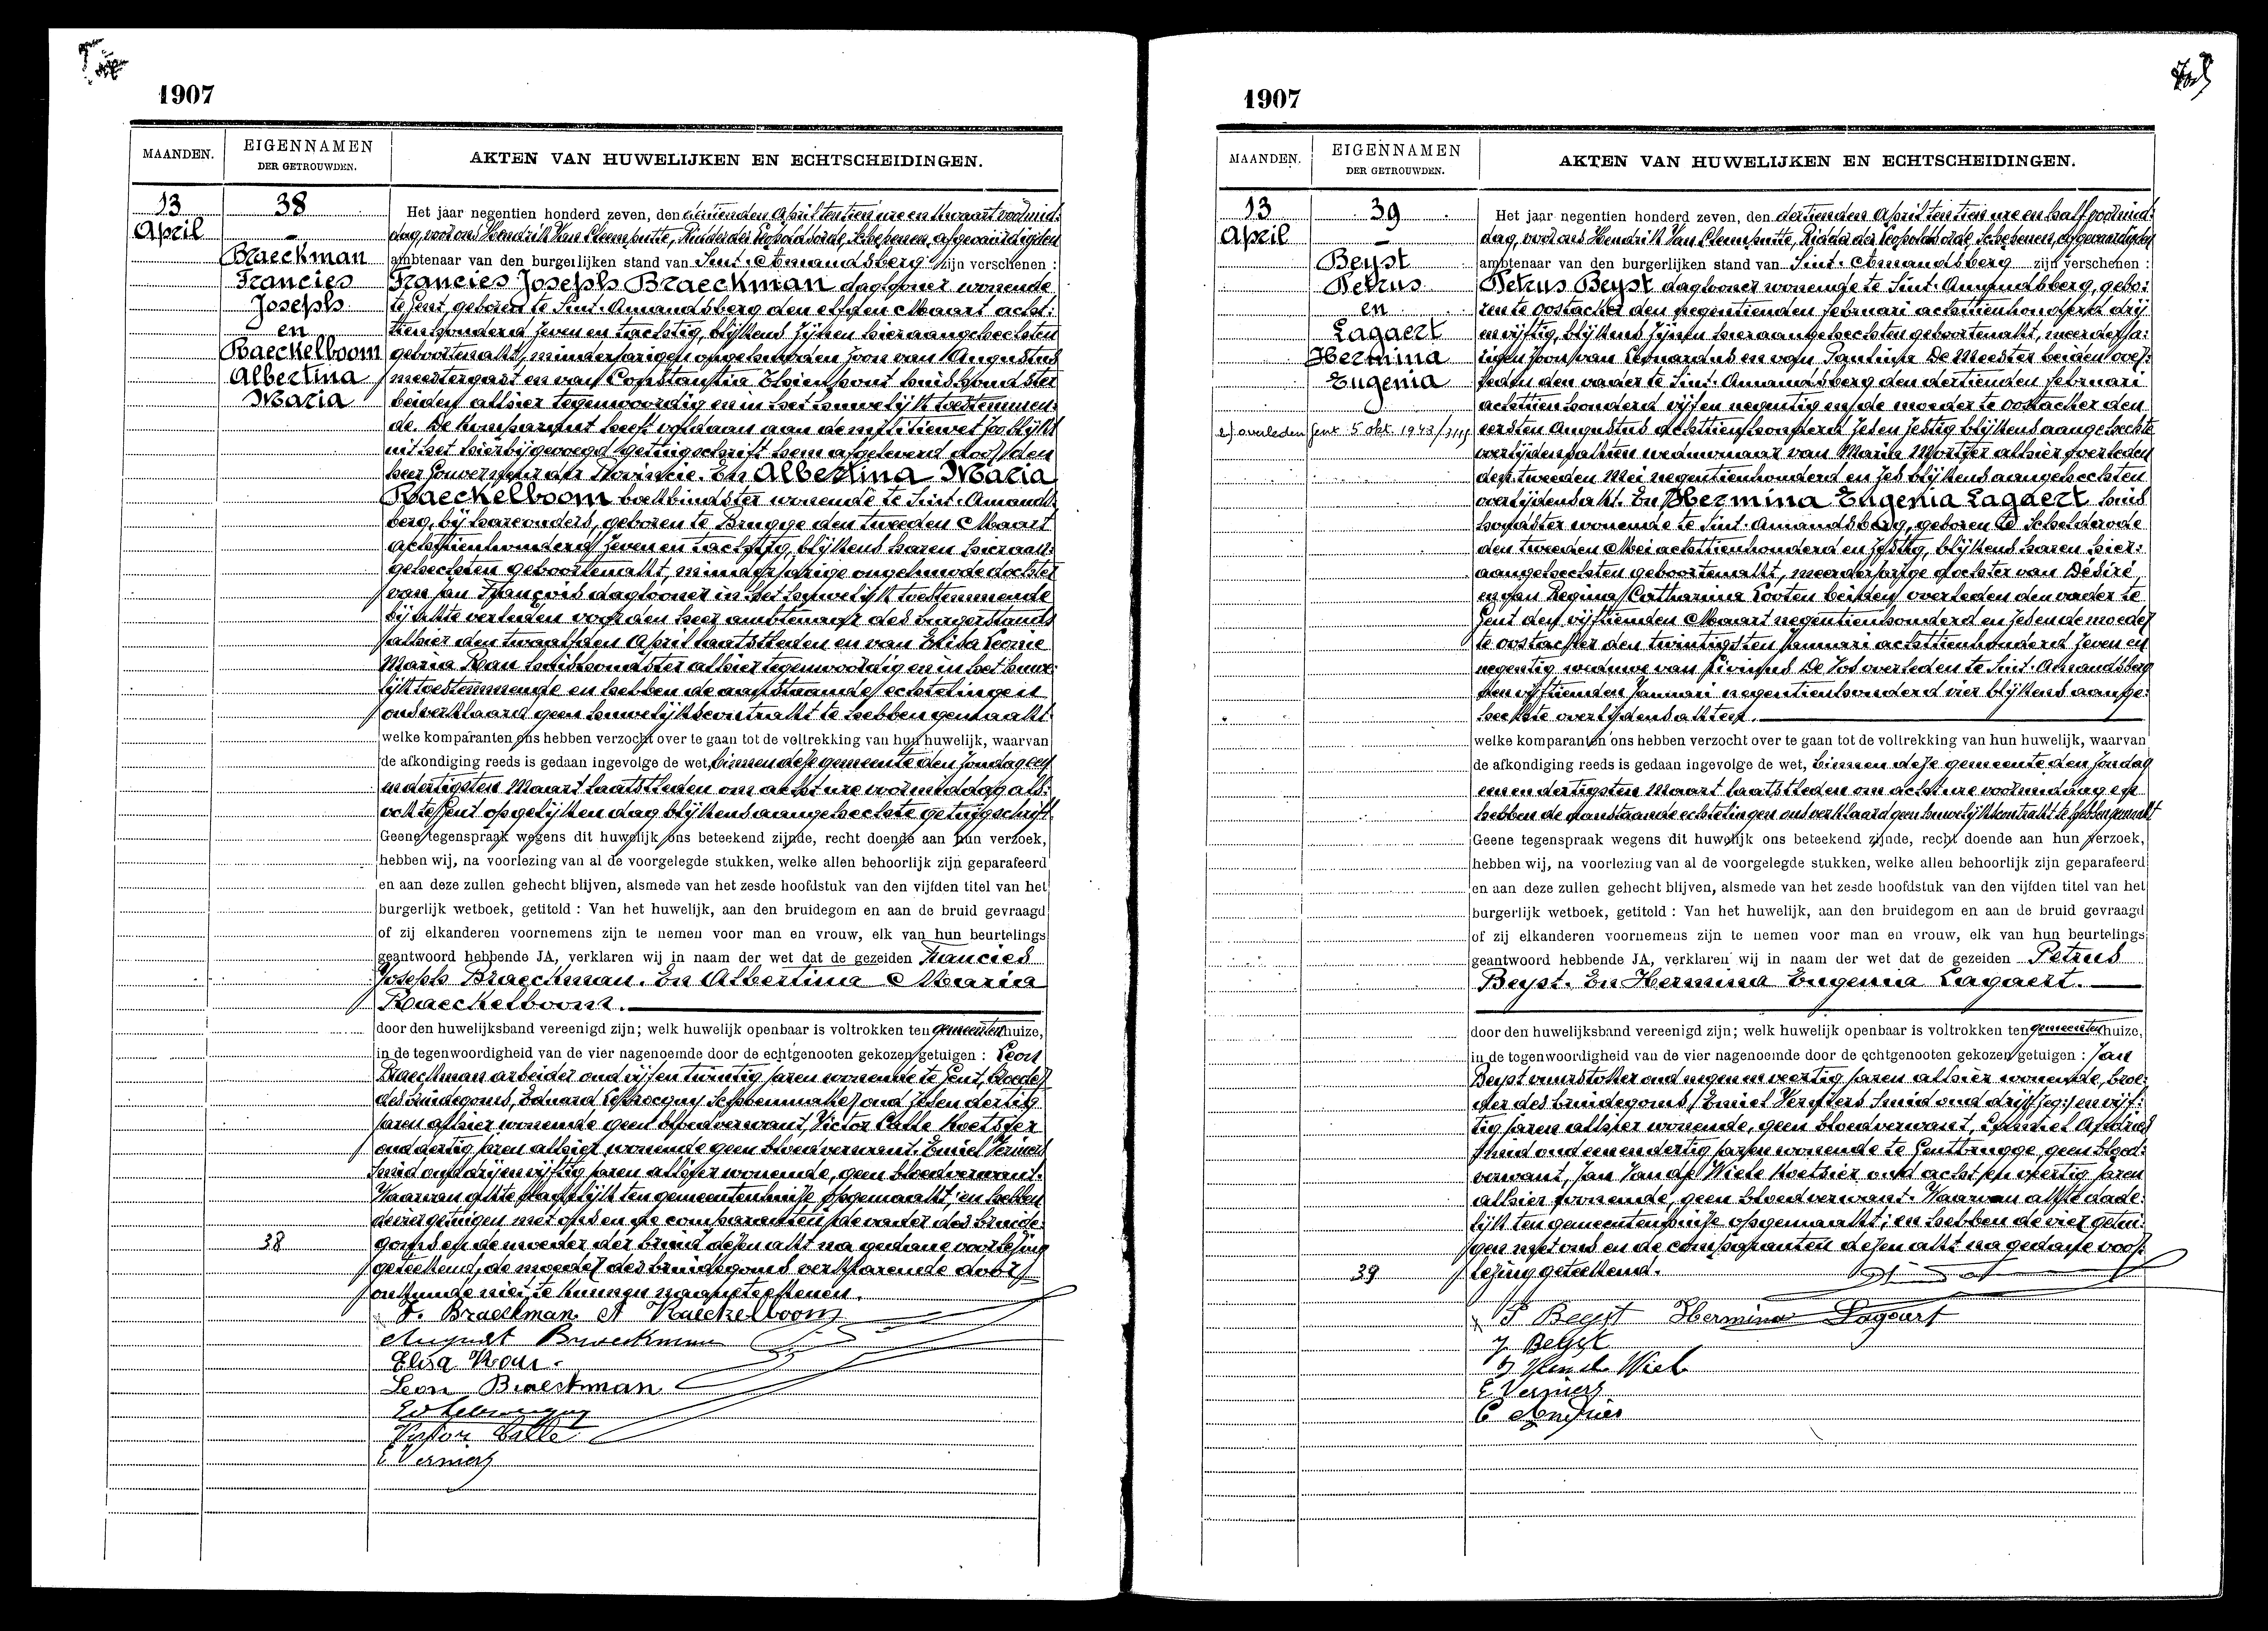 1907
MAANDEN.
EIGENNAMEN
DER GETROUWDEN.
AKTEN VAN HUWELIJKEN EN ECHTSCHEIDINGEN.
13
April
38
Braeckman
Francies
Joseph
en
Raeckelboom
Albertina
Maria
Het jaar negentien honderd zeven, den dertienden April ten tien ure en kwaart voormid:
dag, voor ons Hendrik Van Cleemputte, Ridder der Leopoldsorde, Schepenen, afgevaardigden
ambtenaar van den burgerlijken stand van Sint-Amandsberg zijn verschenen :
Francies Joseph Braeckman daglooner wonende
te Gent geboren te Sint-Amandsberg den elfden Maart acht:
tien honderd zeven en tachtig, blijkens zijnen hieraangehechten
geboorteakt, minderjarigen ongehuwden zoon van Augustus
meestergast en van Constantia huishoudster
beiden alhier tegenwoordig en in het huwelijk toestemmen:
de. De komparant heeft voldaan aan de militiewet zoo blijkt
uit het hierbijgevoegd getuigschrift hem afgeleverd door den
heer Gouverneur der Provincie. En Albertina Maria
Raeckelboom boekbindster wonende te Sint-Amands
berg, bij hare ouders, geboren te Brugge den tweeden Maart
achttienhonderd zeven en tachtig, blijkens haren hieraan:
gehechten geboorteakt, minderjarige ongehuwde dochter
van Jan François daglooner in het huwelijk toestemmende
bij akte verleden voor den heer ambtenaar des burgerstands
alhier den twaalfden April laatstleden en van Elisa Leonie
Maria huishoudster alhier tegenwoordig en in het huwe:
lijk toestemmende en hebben de aanstaande echtelingen
ons verklaard geen huwelijkscontrakt te hebben gemaakt.
welke komparanten ons hebben verzocht over te gaan tot de voltrekking van hun huwelijk, waarvan
de afkondiging reeds is gedaan ingevolge de wet, binnen deze gemeente den zondag een
en dertigsten Maart laatstleden om acht ure voormiddag als:
ook te Gent op gelijken dag blijkens aangehechte getuigschrift
Geene tegenspraak wegens dit huwelijk ons beteekend zijnde, recht doende aan hun verzoek,
hebben wij, na voorlezing van al de voorgelegde stukken, welke allen behoorlijk zijn geparafeerd
en aan deze zullen gehecht blijven, alsmede van het zesde hoofdstuk van den vijfden titel van het
burgerlijk wetboek, getiteld : Van het huwelijk, aan den bruidegom en aan de bruid gevraagd
of zij elkanderen voornemens zijn te nemen voor man en vrouw, elk van hun beurtelings
geantwoord hebbende JA, verklaren wij in naam der wet dat de gezeiden Francies
Joseph Braeckman. En Albertina Maria
Raeckelboom.
door den huwelijksband vereenigd zijn; welk huwelijk openbaar is voltrokken ten gemeentenhuize,
in de tegenwoordigheid van de vier nagenoemde door de echtgenooten gekozen getuigen : Leon
Braeckman arbeider oud vijf en twintig jaren wonende te Gent, broeder
des bruidegoms, Eduard schoenmaker oud zes en dertig
jaren alhier wonende geen bloedverwant, Victor Calle koetsier
oud dertig jaren alhier wonende geen bloedverwant. Emiel Verniers
smid oud drij en vijftig jaren alhier wonende, geen bloedverwant.
Waarvan akte dadelijk ten gemeentenhuize opgemaakt; en hebben
de vier getuigen met ons en de comparanten, de vader des bruide:
goms en de moeder der bruid dezen akt na gedane voorlezing
geteekend, de moeder des bruidegoms verklarende door
onkunde niet te kunnen naamteekenen.
38
F. Braeckman A Raeckelboom
August Braeckman
Elisa
Leon Braeckman
Victor Calle
E Verniers
1907
MAANDEN.
EIGENNAMEN
DER GETROUWDEN.
AKTEN VAN HUWELIJKEN EN ECHTSCHEIDINGEN.
13
April
39
Beyst
Petrus
en
Lagaert
Hermina
Eugenia
overleden Gent 5 okt. 1943
Het jaar negentien honderd zeven, den dertienden April ten tien ure en half voormid:
dag, voor ons Hendrik Van Cleemputte, Ridder der Leopoldsorde, Schepenen, afgevaardigden
ambtenaar van den burgerlijken stand van Sint-Amandsberg zijn verschenen :
Petrus Beyst daglooner wonende te Sint-Amandsberg, gebo:
ren te Oostacker den negentienden Februari achttienhonderd drij
en vijftig, blijkens zijnen hieraangehechten geboorteakt, meerderja:
rigen zoon van Leonardus en van Paulina De Meester beiden over:
leden den vader te Sint-Amandsberg den dertienden Februari
achttienhonderd vijf en negentig en de moeder te Oostacker den
eersten Augustus achttienhonderd zes en zestig blijkens aangehechte
overlijdensakten weduwnaar van Maria alhier overleden
den tweeden Mei negentienhonderd en zes blijkens aangehechten
overlijdensakt. En Hermina Eugenia Lagaert huis
houdster wonende te Sint-Amandsberg, geboren te Schelderode
den tweeden Mei achttienhonderd en zestig, blijkens haren hier:
aangehechten geboorteakt, meerderjarige dochter van Désiré
en van Regina Catharina Looten beiden overleden den vader te
Gent den vijftienden Maart negentienhonderd en zes en de moeder
te Oostacker den twintigsten Januari achttienhonderd zeven en
negentig weduwe van Livinus De Vos overleden te Sint-Amandsberg
den vijftienden Januari negentienhonderd vier blijkens aange:
hechte overlijdensakten.
welke komparanten ons hebben verzocht over te gaan tot de voltrekking van hun huwelijk, waarvan
de afkondiging reeds is gedaan ingevolge de wet, binnen deze gemeente den zondag
een en dertigsten Maart laatstleden om acht ure voormiddag en
hebben de aanstaande echtelingen ons verklaard geen huwelijkscontrakt te hebben gemaakt
Geene tegenspraak wegens dit huwelijk ons beteekend zijnde, recht doende aan hun verzoek,
hebben wij, na voorlezing van al de voorgelegde stukken, welke allen behoorlijk zijn geparafeerd
en aan deze zullen gehecht blijven, alsmede van het zesde hoofdstuk van den vijfden titel van het
burgerlijk wetboek, getiteld : Van het huwelijk, aan den bruidegom en aan de bruid gevraagd
of zij elkanderen voornemens zijn te nemen voor man en vrouw, elk van hun beurtelings
geantwoord hebbende JA, verklaren wij in naam der wet dat de gezeiden Petrus
Beyst. En Hermina Eugenia Lagaert.
door den huwelijksband vereenigd zijn; welk huwelijk openbaar is voltrokken ten gemeentenhuize,
in de tegenwoordigheid van de vier nagenoemde door de echtgenooten gekozen getuigen : Jan
Beyst vuurstoker oud negen en veertig jaren alhier wonende, broe:
der des bruidegoms, Emiel Verniers smid oud drij en vijf:
tig jaren alhier wonende, geen bloedverwant, Andries
smid oud een en dertig jaren wonende te Gentbrugge, geen bloed:
verwant, Jan Van de Wiele koetsier oud acht en veertig jaren
alhier wonende, geen bloedverwant. Waarvan akte dade:
lijk ten gemeentenhuize opgemaakt; en hebben de vier getui:
gen met ons en de comparanten dezen akt na gedane voor:
lezing geteekend.
39
P Beyst Hermina Lagaert
J. Beyst
J Van de Wiele
E Verniers
C Andries